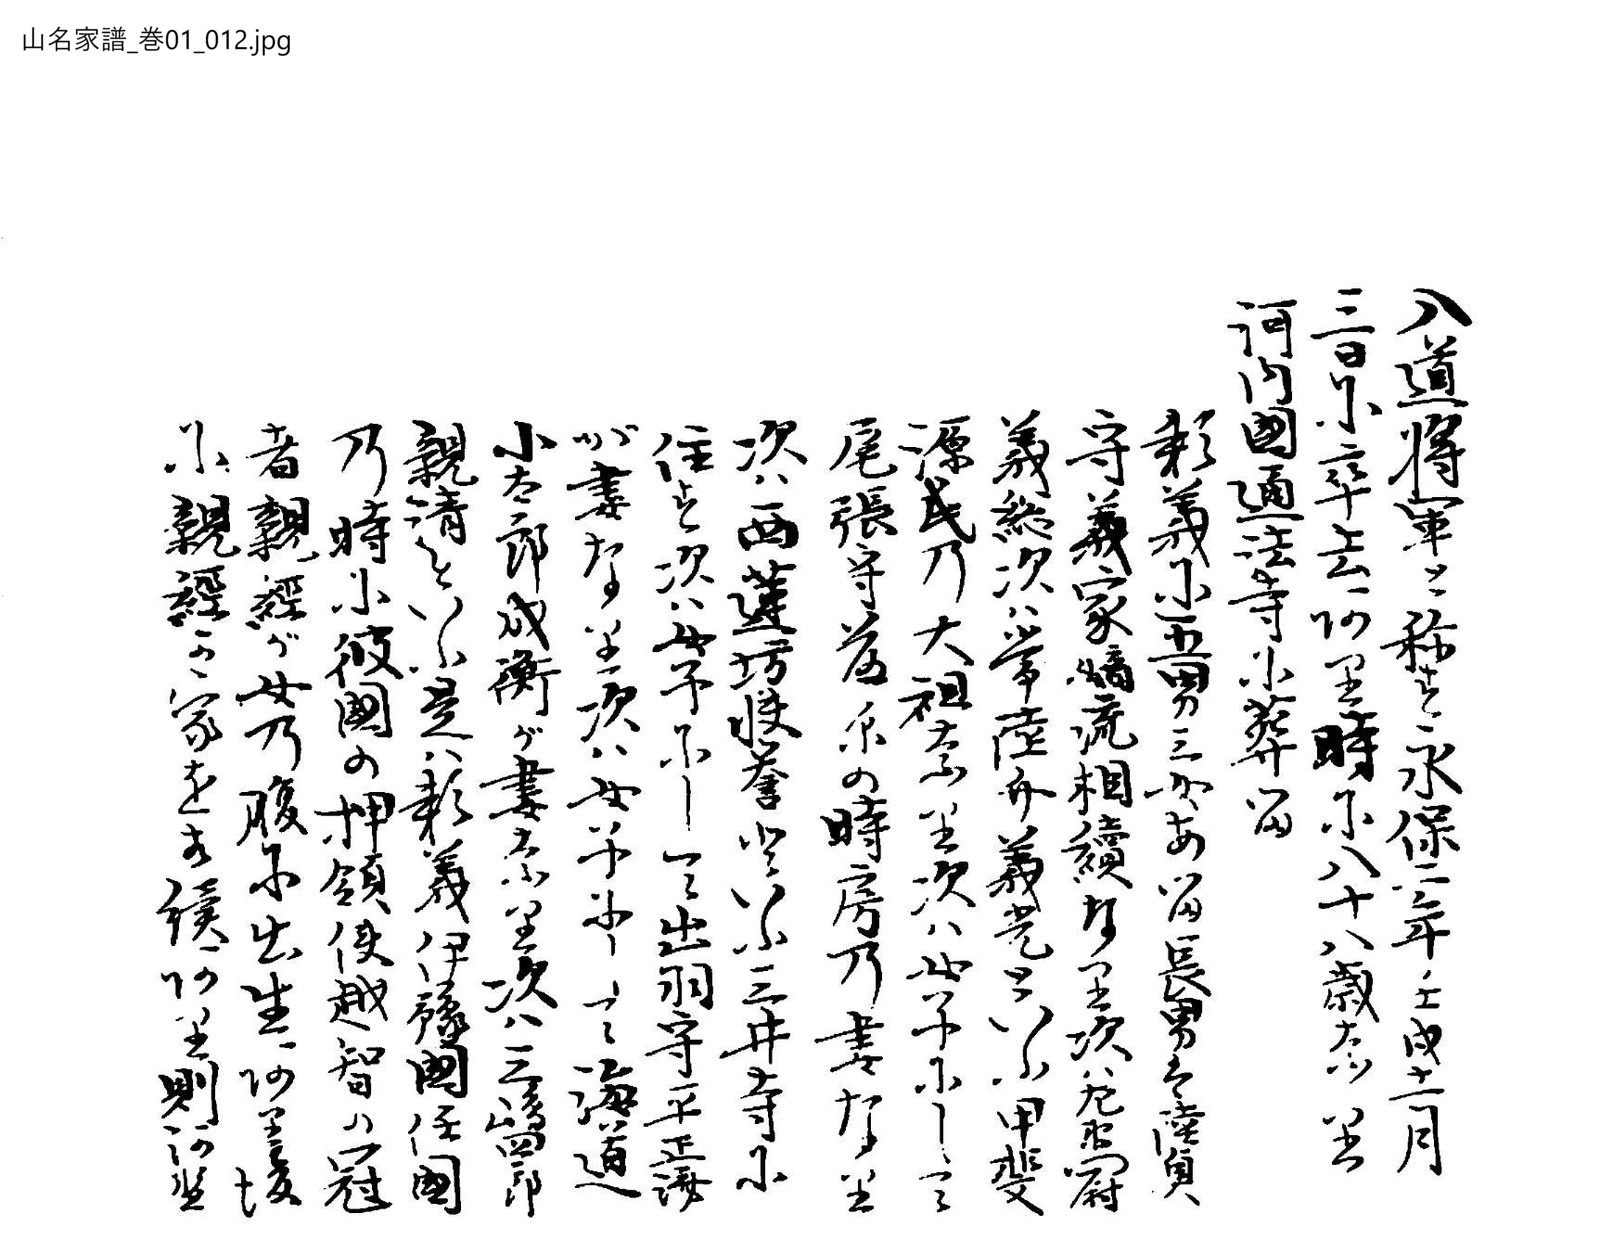 山名家譜_巻01_012.jpg
入道将軍と称す永保二年壬戌十一月
三日に卒去あり時に八十八歳なり
河内國通法寺に葬る
頼義に五男三女ある長男は陸奥
守義家嫡流相續なり次は左衛門尉
義綱次は常陸介義光といふ甲斐
源氏乃大祖なり次は女子にして
尾張守為永の時房乃妻なり
次は西蓮坊快誉といふ三井寺に
住す次は女子にして出羽守平正済
が妻なり次は女子にして海道
小太郎成衡が妻なり次は三嶋四郎
親清といふ是は頼義伊豫國任國
乃時に彼國の押領使越智の冠
者親經が女乃腹に出生あり後
に親經が家を相續あり則河野